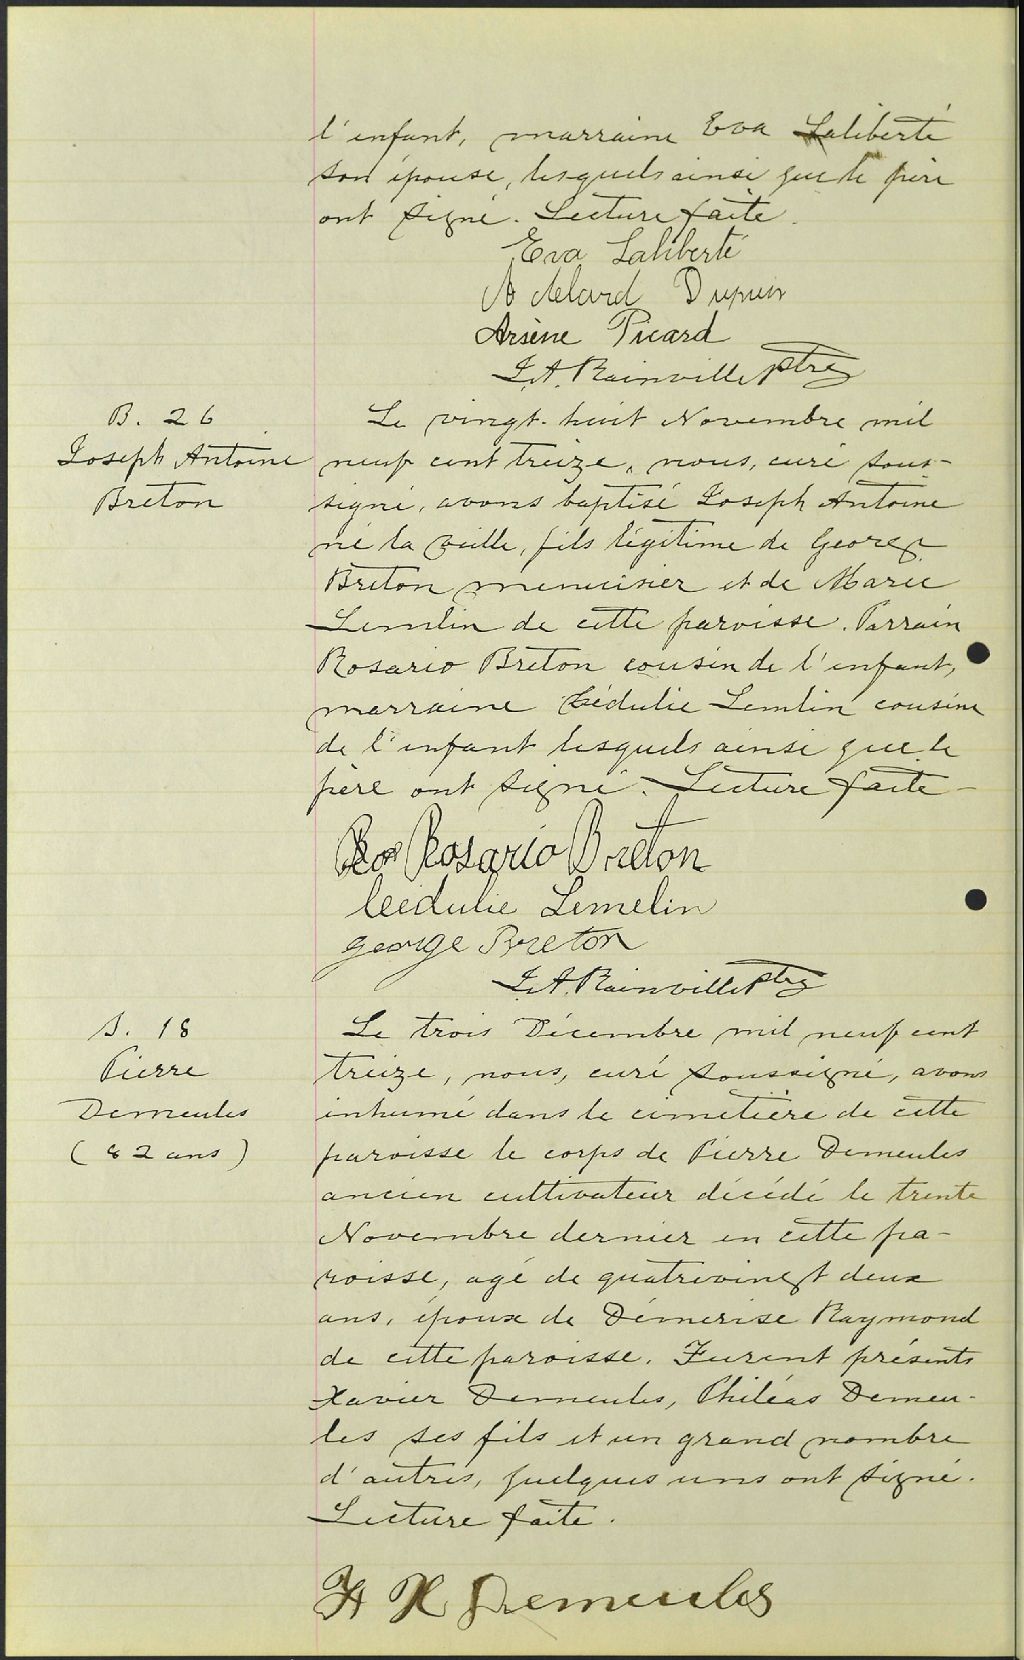 l'enfant, marraine Eva Laliberté
son épouse, lesquels ainsi que le père
ont signé. Lecture faite.
Eva Laliberté
Adelard Dupuis
Arsène Picard
J.A. Rainville ptre
B. 26
Joseph Antoine
Breton
Le vingt-huit Novembre mil
neuf cent treize, nous, curé sous-
signé, avons baptisé Joseph Antoine
né la veille, fils légitime de George
Breton menuisier et de Marie
Lemlin de cette paroisse. Parrain
Rosario Breton cousin de l'enfant,
marraine Cédulie Lemlin cousine
de l'enfant lesquels ainsi que le
père ont signé. Lecture faite
Ros Rosario Breton
Ceédulie Lemelin
george Breton
J.A. Rainville ptre
S. 18
Pierre
Demeules
(82 ans)
Le trois Décembre mil neuf cent
treize, nous, curé soussigné, avons
inhumé dans le cimetière de cette
paroisse le corps de Pierre Demeules
ancien cultivateur décédé le trente
Novembre dernier en cette pa-
roisse, agé de quatrevingt deux
ans, époux de Démerise Raymond
de cette paroisse. Furent présents
Xavier Demeules, Philéas Demeu-
les ses fils et un grand nombre
d'autres, quelques uns ont signé.
Lecture faite.
F X Demeules